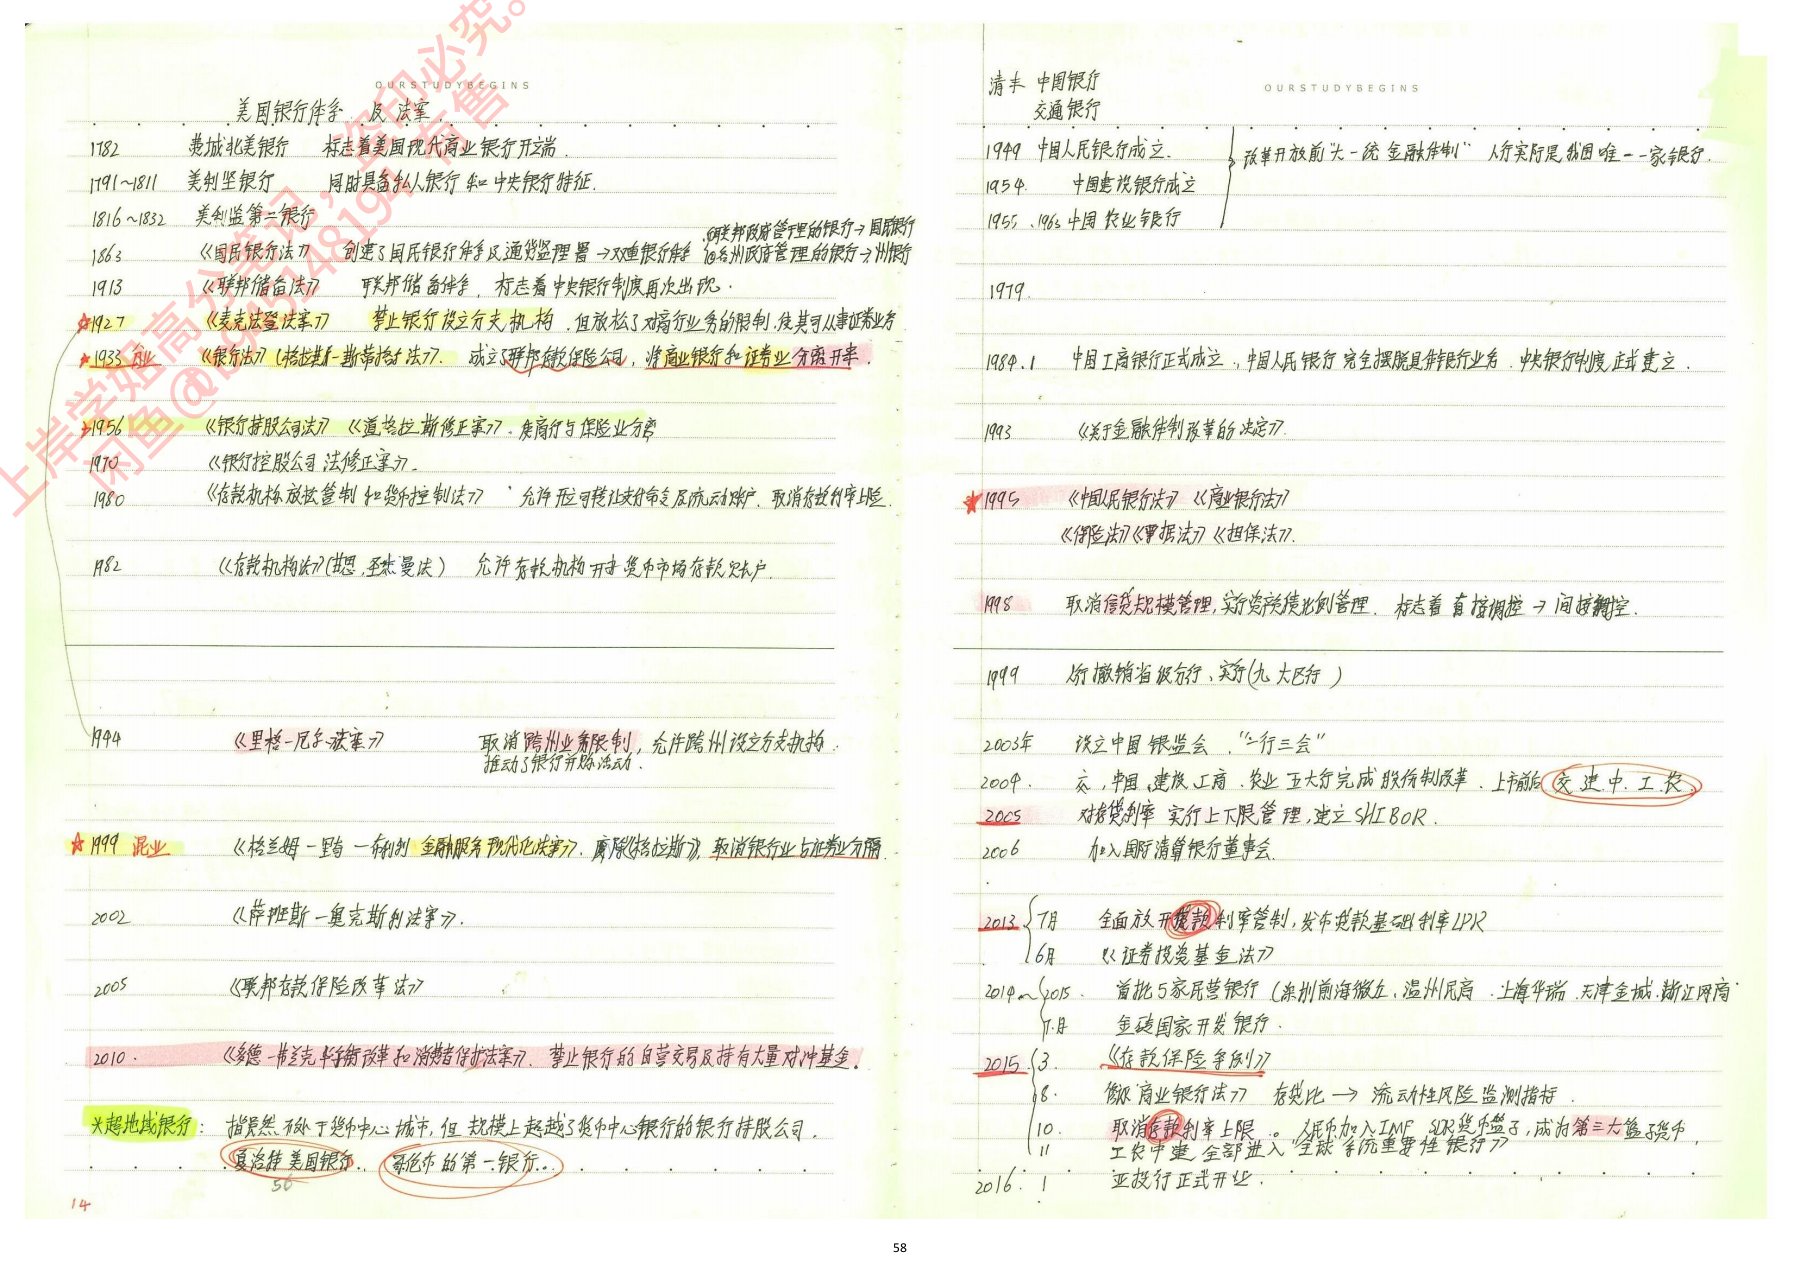 上岸学姐高分笔记，盗印必究。
OURSTUDYBEGINS
美国银行体系 及 法案
1782 费城北美银行 标志着美国现代商业银行开端.
1791~1811 美利坚银行 同时具备私人银行和中央银行特征.
1816~1832 美利坚第二银行
①联邦政府管理的银行→国民银行
1863 《国民银行法》 创建了国民银行体系及通货监理署→双重银行体系 ②各州政府管理的银行→州银行
1913 《联邦储备法》 联邦储备体系, 标志着中央银行制度再次出现.
☆1927 《麦克法登法案》 禁止银行设立分支机构, 但放松了对商行业务的限制,使其可从事证券业务
★1933 分业 《银行法》(格拉斯—斯蒂格尔法》. 成立了联邦存款保险公司, 将商业银行和证券业分离开来.
1956 《银行持股公司法》 《道格拉斯修正案》. 使商行与保险业分离
1970 《银行控股公司法修正案》.
1980 《存款机构放松管制和货币控制法》 允许开立可转让支付命令及流动账户. 取消存款利率上限.
1982 《存款机构法》( 圣杰曼法) 允许存款机构开办货币市场存款账户.
1994 《里格—尼尔法案》 取消跨州业务限制, 允许跨州设立分支机构.
推动了银行并购活动.
☆1999 混业 《格兰姆—里奇—布利利 金融服务现代化法案》. 废除《格拉斯》, 取消银行业与证券业分隔.
2002 《萨班斯—奥克斯利法案》.
2005 《联邦存款保险改革法》
2010. 《多德—弗兰克 华尔街改革和消费者保护法案》. 禁止银行的自营交易及持有大量对冲基金.
※超地域银行: 指虽然不处于货币中心城市, 但规模上超越了货币中心银行的银行持股公司.
美国银行.. 哥伦布的第一银行..
56
14
清末 中国银行
OURSTUDYBEGINS
交通银行
1949 中国人民银行成立. 改革开放前"大一统金融体制" 人行实际是我国唯一一家银行.
1954. 中国建设银行成立
1955 .1963 中国农业银行
1979.
1984.1 中国工商银行正式成立, 中国人民银行完全摆脱具体银行业务. 中央银行制度正式建立.
1993 《关于金融体制改革的决定》.
★1995 《中国人民银行法》 《商业银行法》
《保险法》《票据法》《担保法》.
1998 取消信贷规模管理, 实行资产负债比例管理. 标志着直接调控→间接调控.
1999 人行撤销省级分行、实行(九大区行)
2003年 设立中国银监会. "一行三会"
2004. 交, 中国, 建设, 工商. 农业 五大行完成股份制改革. 上市前后 交. 建. 中. 工. 农.
2005 对存贷利率 实行上下限管理, 建立SHIBOR.
2006 加入国际清算银行董事会.
2013 7月 全面放开贷款利率管制, 发布贷款基础利率LPR
6月 《证券投资基金法》
2014~2015. 首批5家民营银行 (深圳前海微众、温州民商. 上海华瑞. 天津金城. 浙江网商
7.月 金砖国家开发银行.
2015 3. 《存款保险条例》
8. 修改 商业银行法》 存贷比→流动性风险监测指标.
10. 取消存款利率上限. 人民币加入IMF SDR货币篮子, 成为第三大篮子货币.
11 工农中建 全部进入"全球系统重要性银行》
2016. 1 亚投行正式开业.
58